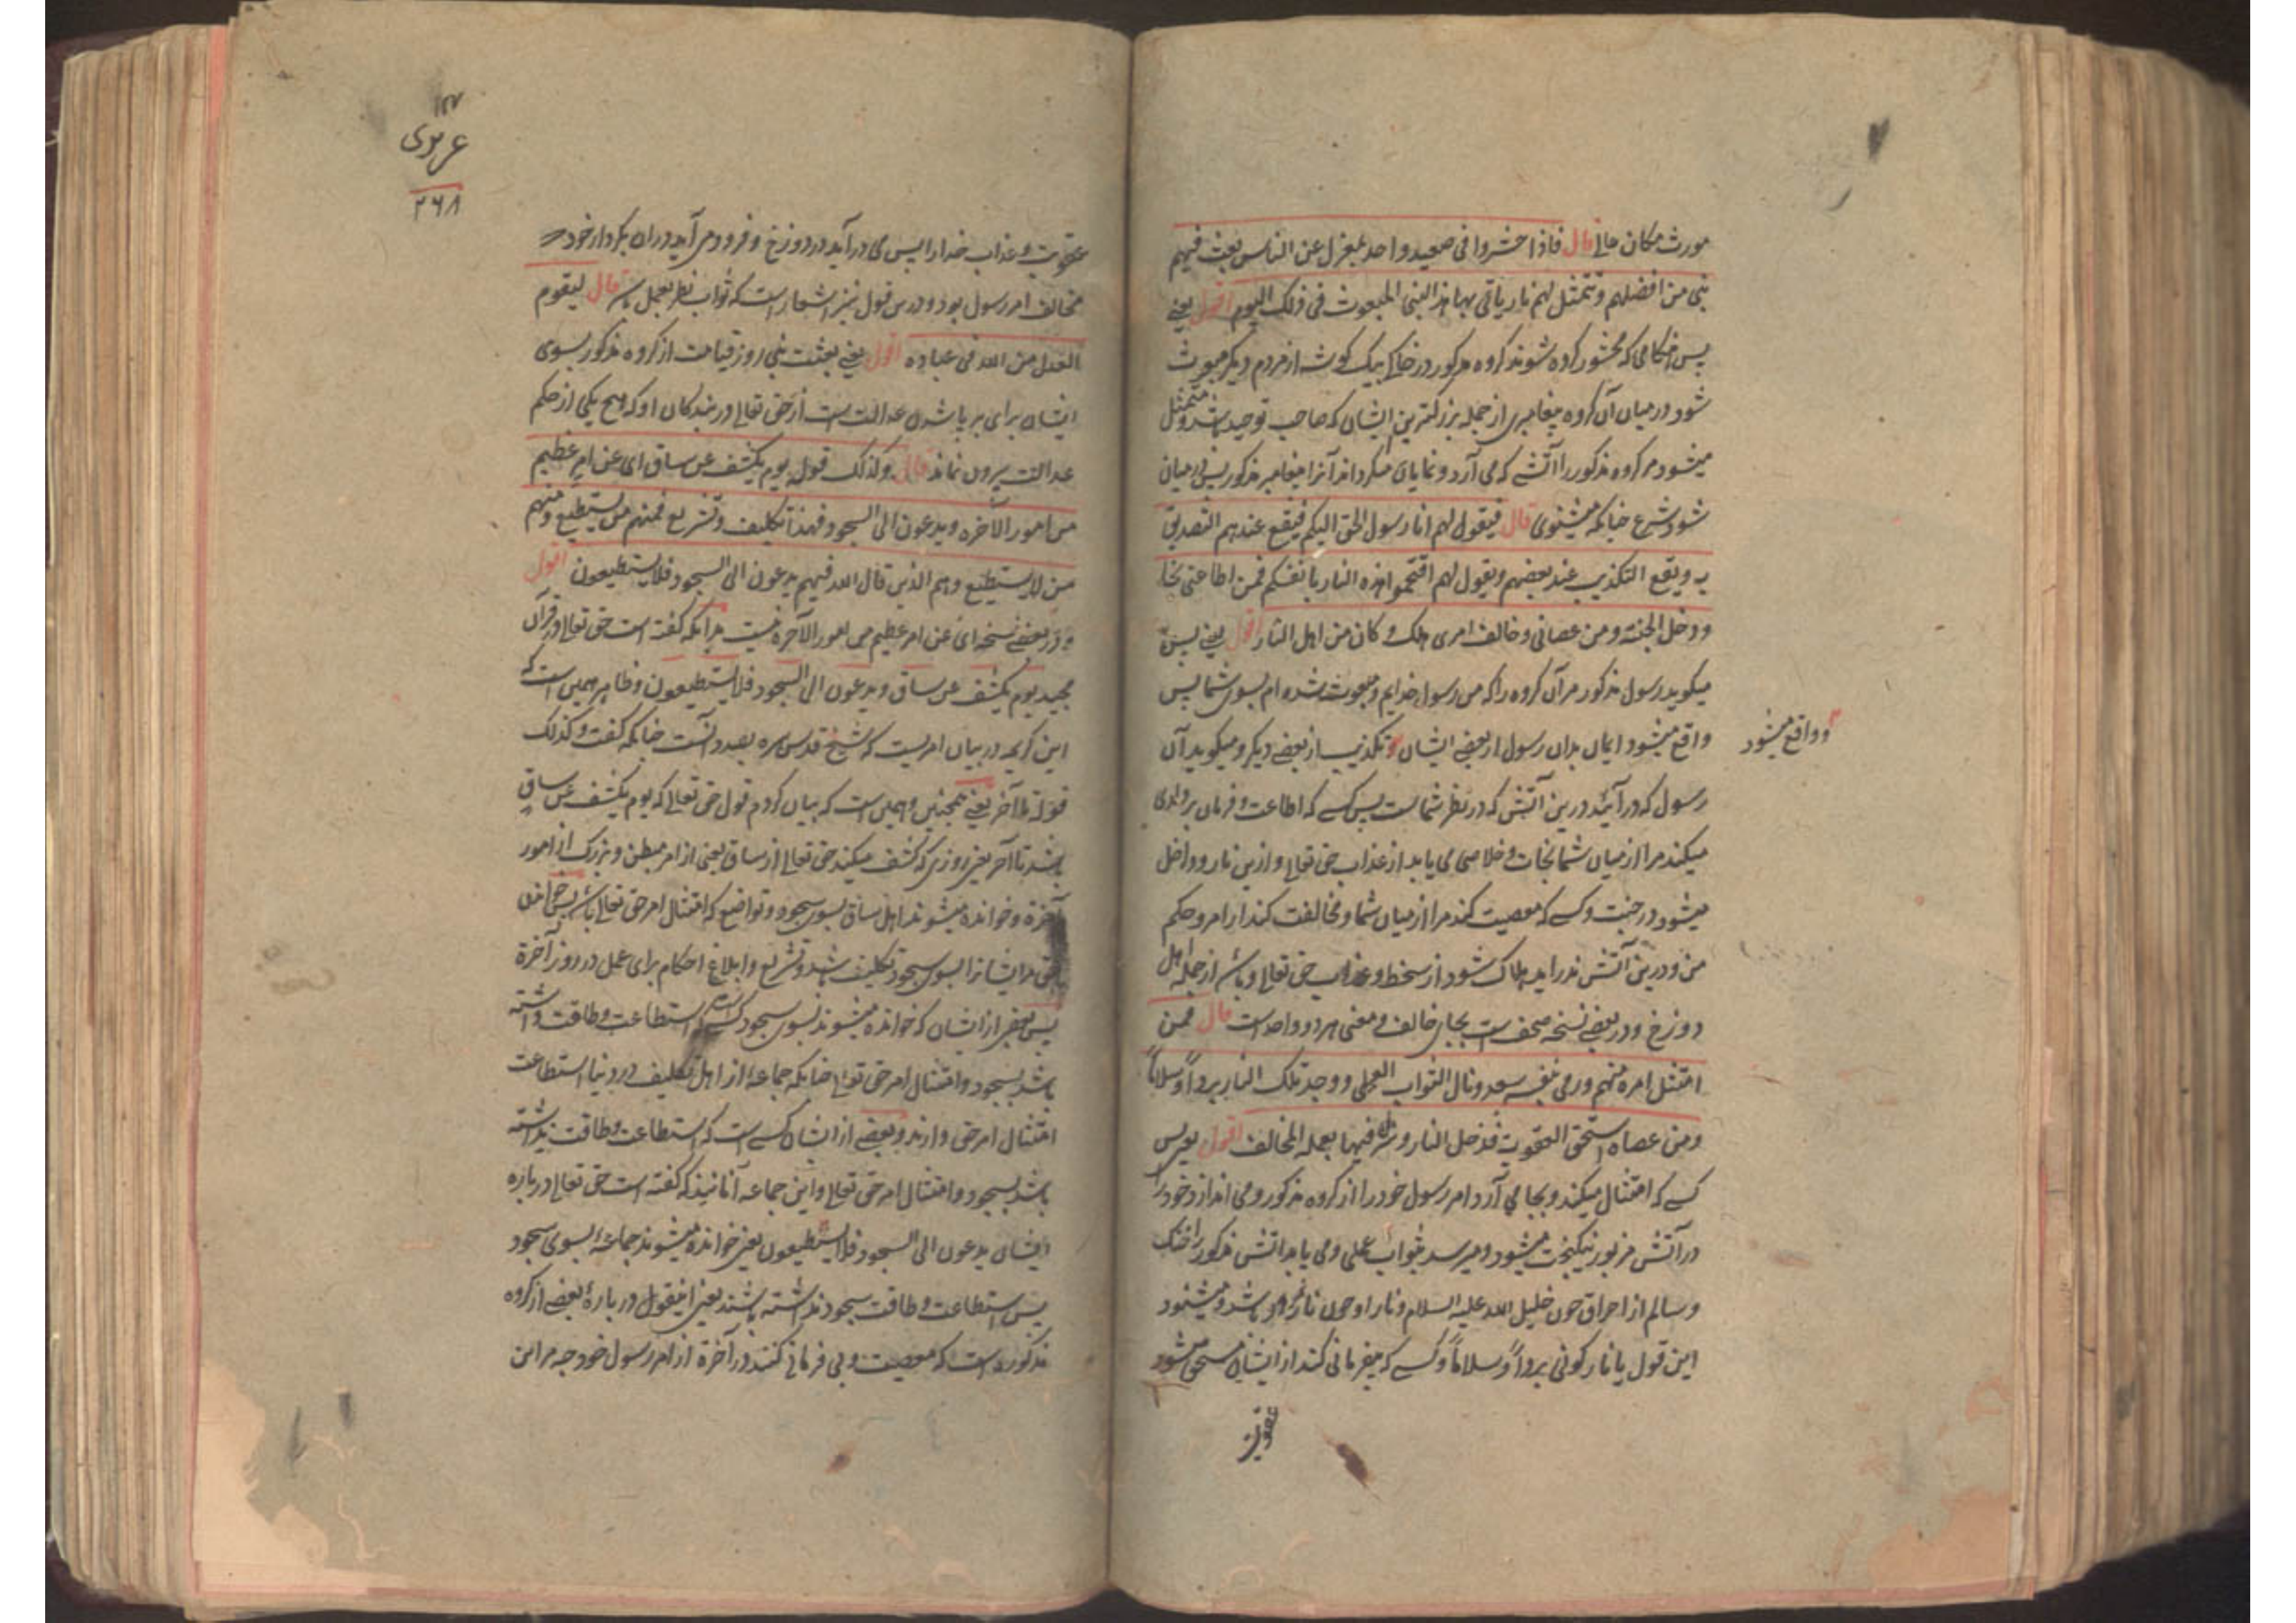 مورث مکان عالی قال فاذا حشروا فی صعید واحد بمعزل عن الناس بعث فیهم
نبی من افضلهم و تتمثل لهم نار یاتی بها هذا النبی المبعوث فی ذلک الیوم اقول یعنے
پس هنگامی که محشور کرده شوند کروه مذکور در خاک بیک کوشه از مردم دیکر مبعوث
شود در میان آن کروه پیغامبری از جمله بزرکترین ایشان که صاحب توحید باشد و متمثل
میشود مر کروه مذکور را آتشے که می آرد و نمایان میکرداند آنرا پیغامبر مذکور پس در میان
شود شرع چنانکه میشنوی قال فیقول لهم انا رسول الحق الیکم فیقع عندهم التصدیق
به و یقع التکذیب عند بعضهم و یقول لهم اقتحموا هذه النار بانفسکم فمن اطاعنی نجا
و دخل الجنة و من عصانی و خالف امری هلک و کان من اهل النار اقول یعنے پس
میکوید رسول مذکور مر آن کروه را که من رسول خدایم و مبعوث شده ام بسوی شما پس
واقع میشود ایمان بدان رسول از بعضے ایشان و تکذیب از بعضے دیکر و میکوید آن
و واقع میشود
رسول که در آئید درین آتش که در نظر شماست پس کسے که اطاعت و فرمان برداری
میکند مرا از میان شما نجات و خلاصی می یابد از عذاب حق تعالے و ازین نار و داخل
میشود در جنت و کسے که معصیت کند مرا از میان شما و مخالفت کند از امر و حکم
من و درین آتش ندراید هلاک شود از سخط و عذاب حق تعالے و باشد از جمله اهل
دوزخ و در بعضے نسخه است بجای خالف و معنی هر دو واحد است قال فمن
امتثل امره منهم و رمی بنفسه سعد و نال الثواب العملی و وجد تلک النار بردا و سلاما
و من عصاه استحق العقوبة فدخل النار و نزل فیها بعمله المخالف اقول یعنی پس
کسے که امتثال میکند و بجا می آرد امر رسول خود را از کروه مذکور و می اندازد خود را
در آتش مزبور نیکبخت میشود و میرسد بثواب عملی و می یابد آتش مذکور را خنک
و سالم از احراق چون خلیل الله علیه السلام و نار او چون نار نمرود باشد و میشنود
این قول یا نار کونی بردا و سلاما و کسے که بیفرمانی کند از ایشان مستحق میشود
عقوبت
عربوی
۲۶۸
عقوبت و عذاب خدا را پس می درآید در دوزخ و فرود می آید دران بکردار خود که
مخالف امر رسول بود و درین قول نیز اشعار است که ثواب نظر بعمل باشد قال لیقوم
العدل من الله فی عباده اقول یعنے بعثت نبی روز قیامت از کروه مذکور بسوی
ایشان برای برپا شدن عدالت است از حق تعالے در بندکان او که هیچ یکی از حکم
عدالت بیرون نماند قال و کذلک قوله یوم یکشف عن ساق ای عن امر عظیم
من امور الآخره و یدعون الی السجود فهذا تکلیف و تشریع فمنهم من یستطیع و منهم
من لا یستطیع و هم الذین قال الله فیهم یدعون الی السجود فلا یستطیعون اقول
در بعضے نسخه ای عن امر عظیم من امور الآخره نیست بدانکه کفته است حق تعالے در قرآن
مجید یوم یکشف عن ساق و یدعون الی السجود فلا یستطیعون و ظاهر همین است که
این کریمه در بیان امریست که شیخ قدس سره بصدد آنست چنانکه کفت و کذلک
قوله تا آخر یعنے همچنین و همین است که بیان کردم قول حق تعالے که یوم یکشف عن ساق
باشد تا آخر یعنی روزی که کشف میکند حق تعالے از ساق یعنی از امر و بزرک از امور
آخرة و خوانده میشوند اهل ساق بسوی سجود و تواضع که امتثال امر حق تعالے باشد پس
حق مر ایشانرا بسوی سجود تکلیف باشد و تشریع و ابلاغ احکام برای عمل در روز آخرة
پس بعضے از ایشان که خوانده میشوند بسوی سجود کسے است که استطاعت و طاقت داشته
باشد بسجود و امتثال امر حق تعالے چنانکه جماعه از اهل تکلیف در دنیا استطاعت
امتثال امر حق دارند و بعضے از ایشان کسے است که استطاعت و طاقت نداشته
باشد بسجود و امتثال امر حق تعالے و این جماعه آنانیند که کفته است حق تعالے درباره
ایشان یدعون الی السجود فلا یستطیعون یعنی خوانده میشوند جماعه بسوی سجود
پس استطاعت و طاقت سجود نداشته باشند یعنی اینقول درباره بعضے از کروه
مذکوره است که معصیت و بی فرمانی کنند در آخرة از امر رسول خود چه مر این